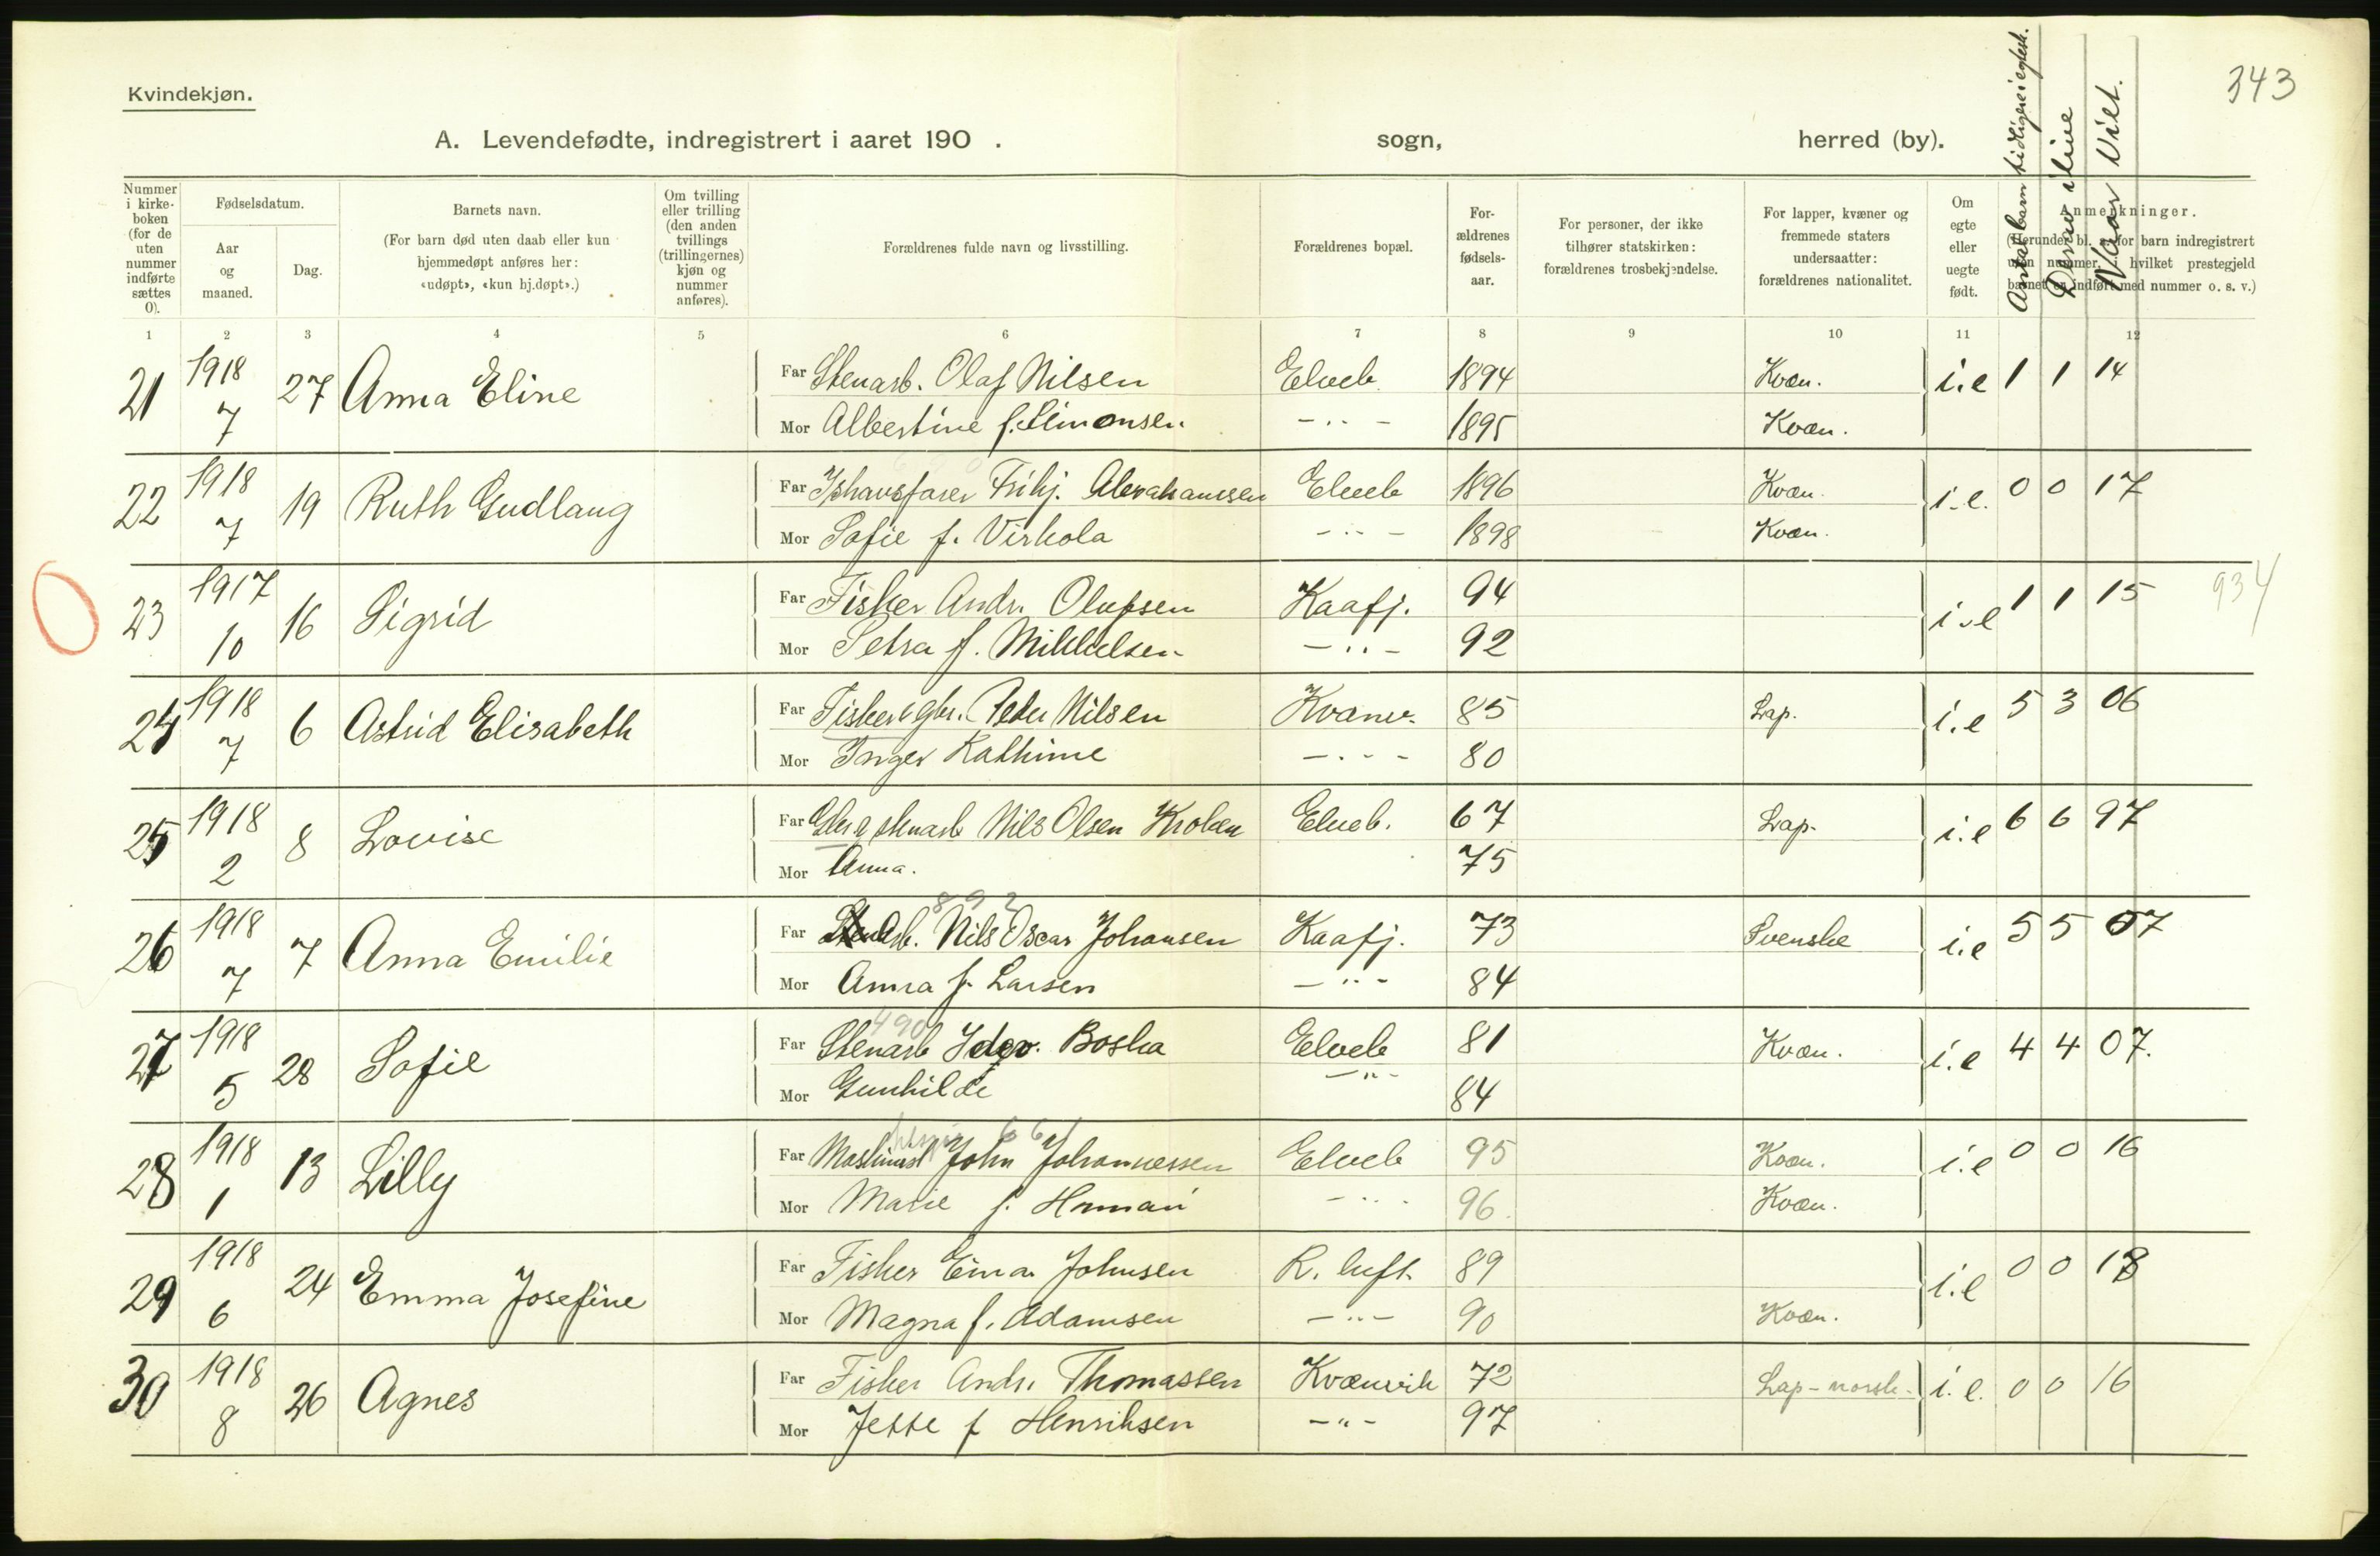 343
Kvindekjøn.
A. Levendefødte, indregistrert i aaret 190 . sogn, herred (by).
Nummer i kirke-boken (for de uten nummer indførte sættes 0).
Fødselsdatum.
Aar og maaned.
Dag.
Barnets navn.
(For barn død uten daab eller kun hjemmedøpt anføres her: «udøpt», «kun hj.døpt».)
Om tvilling eller trilling (den anden tvillings (trillingernes) kjøn og nummer anføres).
Forældrenes fulde navn og livsstilling.
Forældrenes bopæl.
For-ældrenes fødsels-aar.
For personer, der ikke tilhører statskirken: forældrenes trosbekjendelse.
For lapper, kvæner og fremmede staters undersaatter: forældrenes nationalitet.
Om egte eller uegte født.
Anmerkninger.
(Herunder bl. a. for barn indregistrert uten nummer, i hvilket prestegjeld barnet er indført med nummer o. s. v.)
Antal barn tidligere i egtesk.
Derav ilive
Naar viet.
1 2 3 4 5 6 7 8 9 10 11 12
21 1918 7 27 Anna Eline Far Stenarb. Olaf Nilsen Elveb. 1894 Kvæn. i.e 1 1 14
Mor Albertine f. Simonsen. -"- 1895 Kvæn.
22 1918 7 19 Ruth Gudlaug Far Ishavsfarer Frihj. Abrahamsen Elveb 1896 Kvæn. i.e. 0 0 17
Mor Sofie f. Virkola -"- 1898 Kvæn.
23 1917 10 16 Sigrid Far Fisker Andr. Olufsen Kaafj. 94 i.e 1 1 15 934
Mor Petra f. Mikkelsen -"- 92
24 1918 7 6 Astrid Elisabeth Far Fisker & gbr. Peder Nilsen Kvænv. 85 Lap. i.e 5 3 06
Mor Inger Kathrine -"- 80
25 1918 2 8 Lovise Far Gbr & stenarb Nils Olsen Elveb. 67 Lap. i.e 6 6 97
Mor Anna. 75
892
26 1918 7 7 Anna Emilie Far Stenarb. Nils Oscar Johansen Kaafj. 73 Svenske i.e 5 5 07
Mor Anna f. Larsen -"- 84
490
27 1918 5 28 Sofie Far Stenarb Boska Elveb 81 Kvæn. i.e 4 4 07.
Mor Gunhilde -"- 84
28 1918 1 13 Lilly Far Maskinist John Johannessen Elveb 95 Kvæn. i.e 0 0 16
Mor Marie f. -"- 96. Kvæn.
29 1918 6 24 Emma Josefine Far Fisker Einar Johnsen R. luft. 89 i.e 0 0 18
Mor Magna f. Adamsen -"- 90 Kvæn.
30 1918 8 26 Agnes Far Fisker Andr. Thomassen Kvænvik 72 Lap-norsk. i.e. 0 0 16
Mor Jette f Henriksen -"- 97